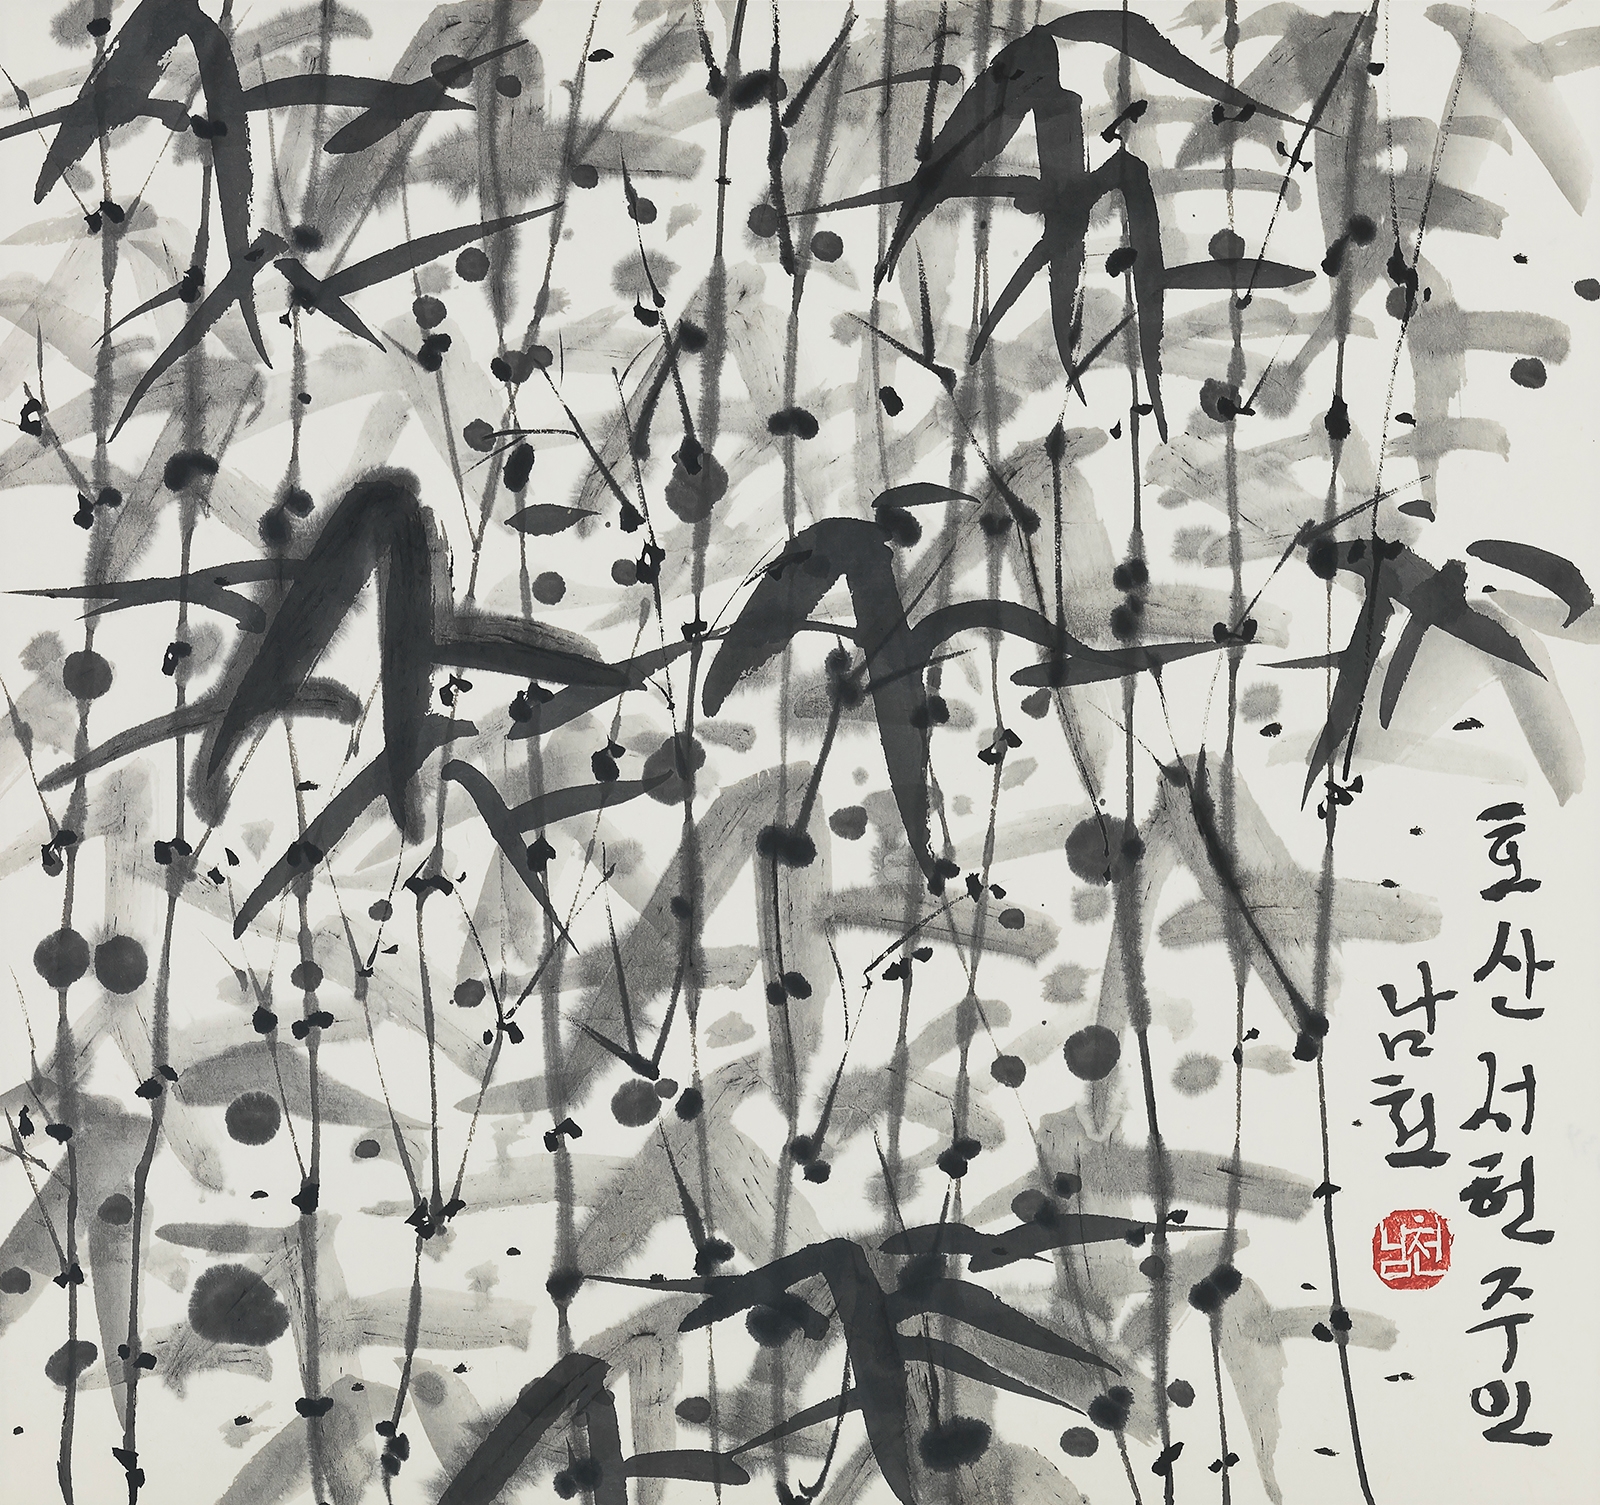 호산서헌주인
남천
남천